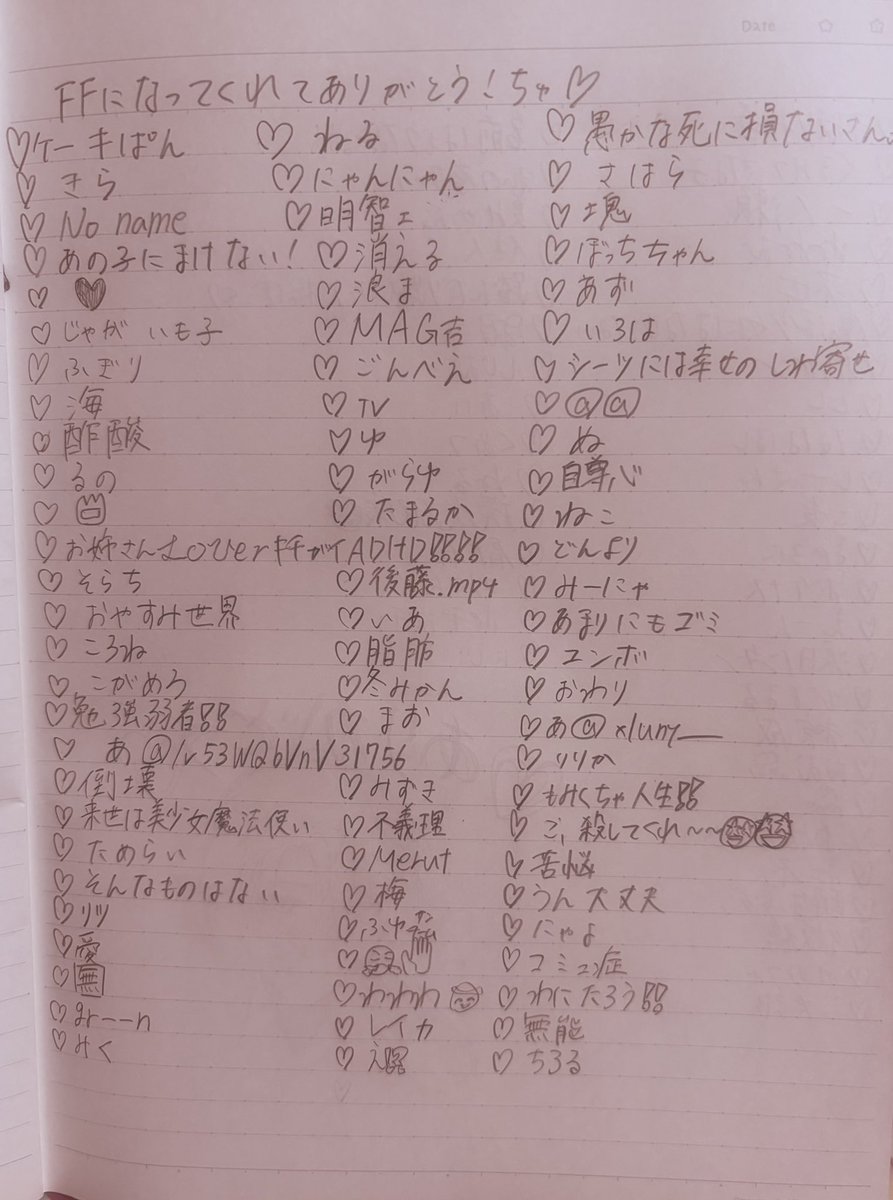 Date
FFになってくれてありがとう！ちゃ♡
♡ケーキぱん ♡ねる ♡愚かな死に損ないさん。
♡きら ♡にゃんにゃん ♡さはら
♡No name ♡明智エ ♡塊
♡あの子にまけない！ ♡消える ♡ぼっちちゃん
♡♥ ♡浪ま ♡あず
♡じゃがいも子 ♡MAG吉 ♡いろは
♡ふぎり ♡ごんべえ ♡シーツには幸せのしわ寄せ
♡海 ♡TV ♡@@
♡酢酸 ♡ゆ ♡ぬ
♡るの ♡がらゆ ♡自尊心
♡ ♡たまるか ♡ねこ
♡お姉さんLoverキチガイADHD!!!! ♡どんより
♡そらち ♡後藤.mp4 ♡みーにゃ
♡おやすみ世界 ♡いあ ♡あまりにもゴミ
♡ころね ♡脂肪 ♡ユンボ
♡こがめろ ♡冬みかん ♡おわり
♡勉強弱者!! ♡まお ♡あ@xluny__
♡あ@lv53WQbVnV31756 ♡りりか
♡倒壊 ♡みずき ♡もみくちゃ人生!!
♡来世は美少女魔法使い ♡不義理 ♡ご、殺してくれ〜〜
♡ためらい ♡Merut ♡苦悩
♡そんなものはない ♡梅 ♡うん大丈夫
♡リツ ♡ふゆ ♡にゃよ
♡愛 ♡ ♡コミュ症
♡無 ♡わわわ ♡わにたろう!!
♡gr--n ♡レイカ ♡無能
♡みく ♡ ♡ちるる